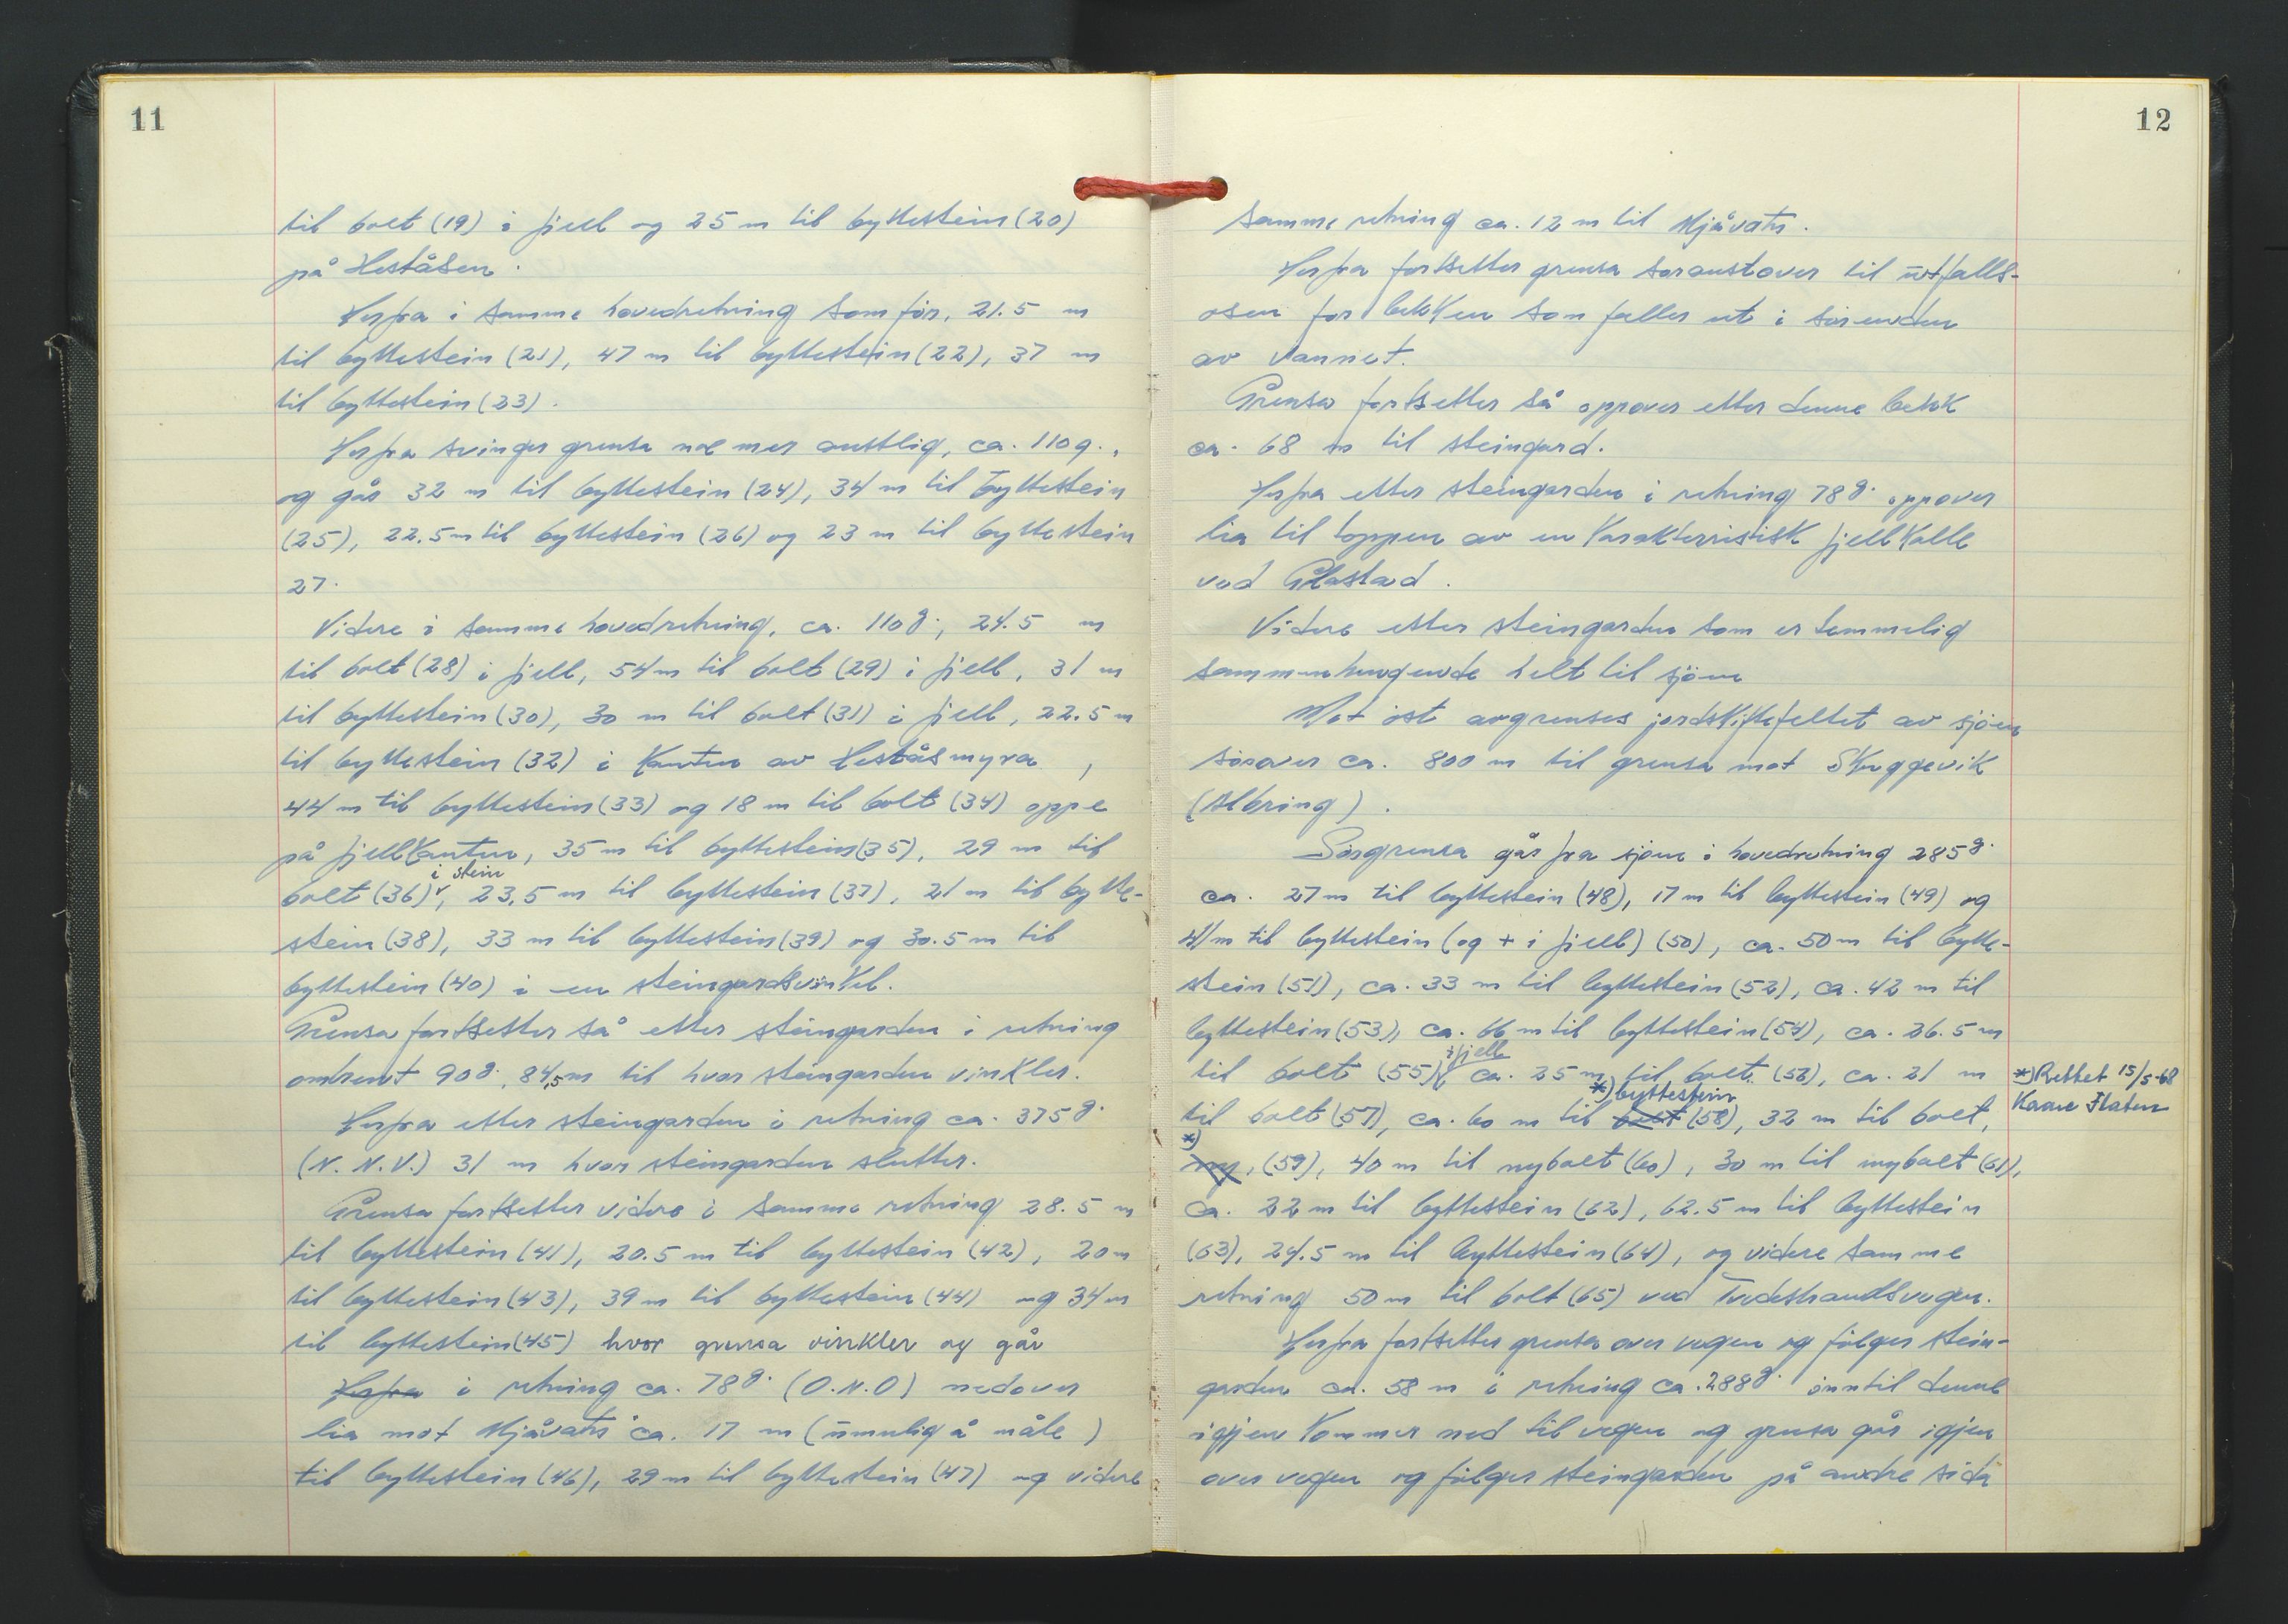 11
til bolt (19) i fjell og 25 m til byttestein (20)
på Heståsen.
Herfra i samme hovedretning som før, 21.5 m
til byttestein (21), 47 m til byttestein (22), 37 m
til byttestein (23).
Herfra svinger grensa noe mer austlig, ca. 110 g.,
og går 32 m til byttestein (24), 34 m til byttestein
(25), 22.5 m til byttestein (26) og 23 m til byttestein
27.
Videre i samme hovedretning, ca. 110 g., 24.5 m
til bolt (28) i fjell, 54 m til bolt (29) i fjell, 31 m
til byttestein (30), 30 m til bolt (31) i fjell, 22.5 m
til byttestein (32) i kanten av Heståsmyra,
44 m til byttestein (33) og 18 m til bolt (34) oppe
på fjellkanten, 35 m til byttestein (35), 29 m til
i stein
bolt (36), 23.5 m til byttestein (37), 21 m til bytte-
stein (38), 33 m til byttestein (39) og 30.5 m til
byttestein (40) i en steingardsvinkel.
Grensa fortsetter så etter steingarden i retning
omtrent 90 g., 84,5 m til hvor steingarden vinkler.
Herfra etter steingarden i retning ca. 375 g.
(N.N.V.) 31 m hvor steingarden slutter.
Grensa fortsetter videre i samme retning 28.5 m
til byttestein (41), 20.5 m til byttestein (42), 20 m
til byttestein (43), 39 m til byttestein (44) og 34 m
til byttestein (45) hvor grensa vinkler og går
Herfra i retning ca. 78 g. (O.N.O) nedover
lia mot Mjåvatn ca. 17 m (umulig å måle)
til byttestein (46), 29 m til byttestein (47) og videre
12
samme retning ca. 12 m til Mjåvatn.
Herfra fortsetter grensa søraustover til utfalls-
osen for bekken som faller ut i sørenden
av vannet.
Grensa fortsetter så oppover etter denne bekk
ca. 68 m til steingard.
Herfra etter steingarden i retning 78 g. oppover
lia til toppen av en karakterristisk fjellkolle
ved
Videre etter steingarden som er temmelig
sammenhengende helt til sjøen
Mot øst avgrenses jordskiftefeltet av sjøen
sørover ca. 800 m til grensa mot Skuggevik
(Albring).
Sørgrensa går fra sjøen i hovedretning 285 g.
ca. 27 m til byttestein (48), 17 m til byttestein (49) og
41 m til byttestein (og + i fjell) (50), ca. 50 m til bytte-
stein (51), ca. 33 m til byttestein (52), ca. 42 m til
byttestein (53), ca. 66 m til byttestein (54), ca. 26.5 m
i fjell
til bolt (55), ca. 25 m til bolt (56), ca. 21 m
*) byttestein
til bolt (57), ca. 60 m til bolt (58), 32 m til bolt,
*)
ny, (59), 40 m til nybolt (60), 30 m til nybolt (61),
ca. 22 m til byttestein (62), 62.5 m til byttestein
(63), 24.5 m til byttestein (64), og videre samme
retning 50 m til bolt (65) ved Tvedestrandsvegen.
Herfra fortsetter grensa over vegen og følger stein-
garden ca. 58 m i retning ca. 288 g. inntil denne
igjen kommer ned til vegen og grensa går igjen
over vegen og følger steingarden på andre sida
*) Rettet 15/5-68
Kaare Flaten